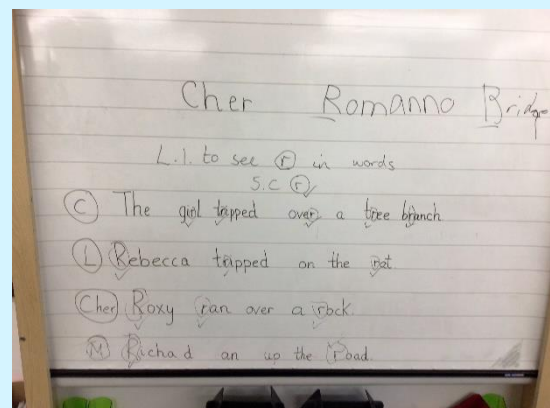 Cher Romanno Bridge
L.I. to see r in words
S.C r
C The girl tripped over a tree branch
L Rebecca tripped on the rat
Cher Roxy ran over a rock.
M Richad an up the road